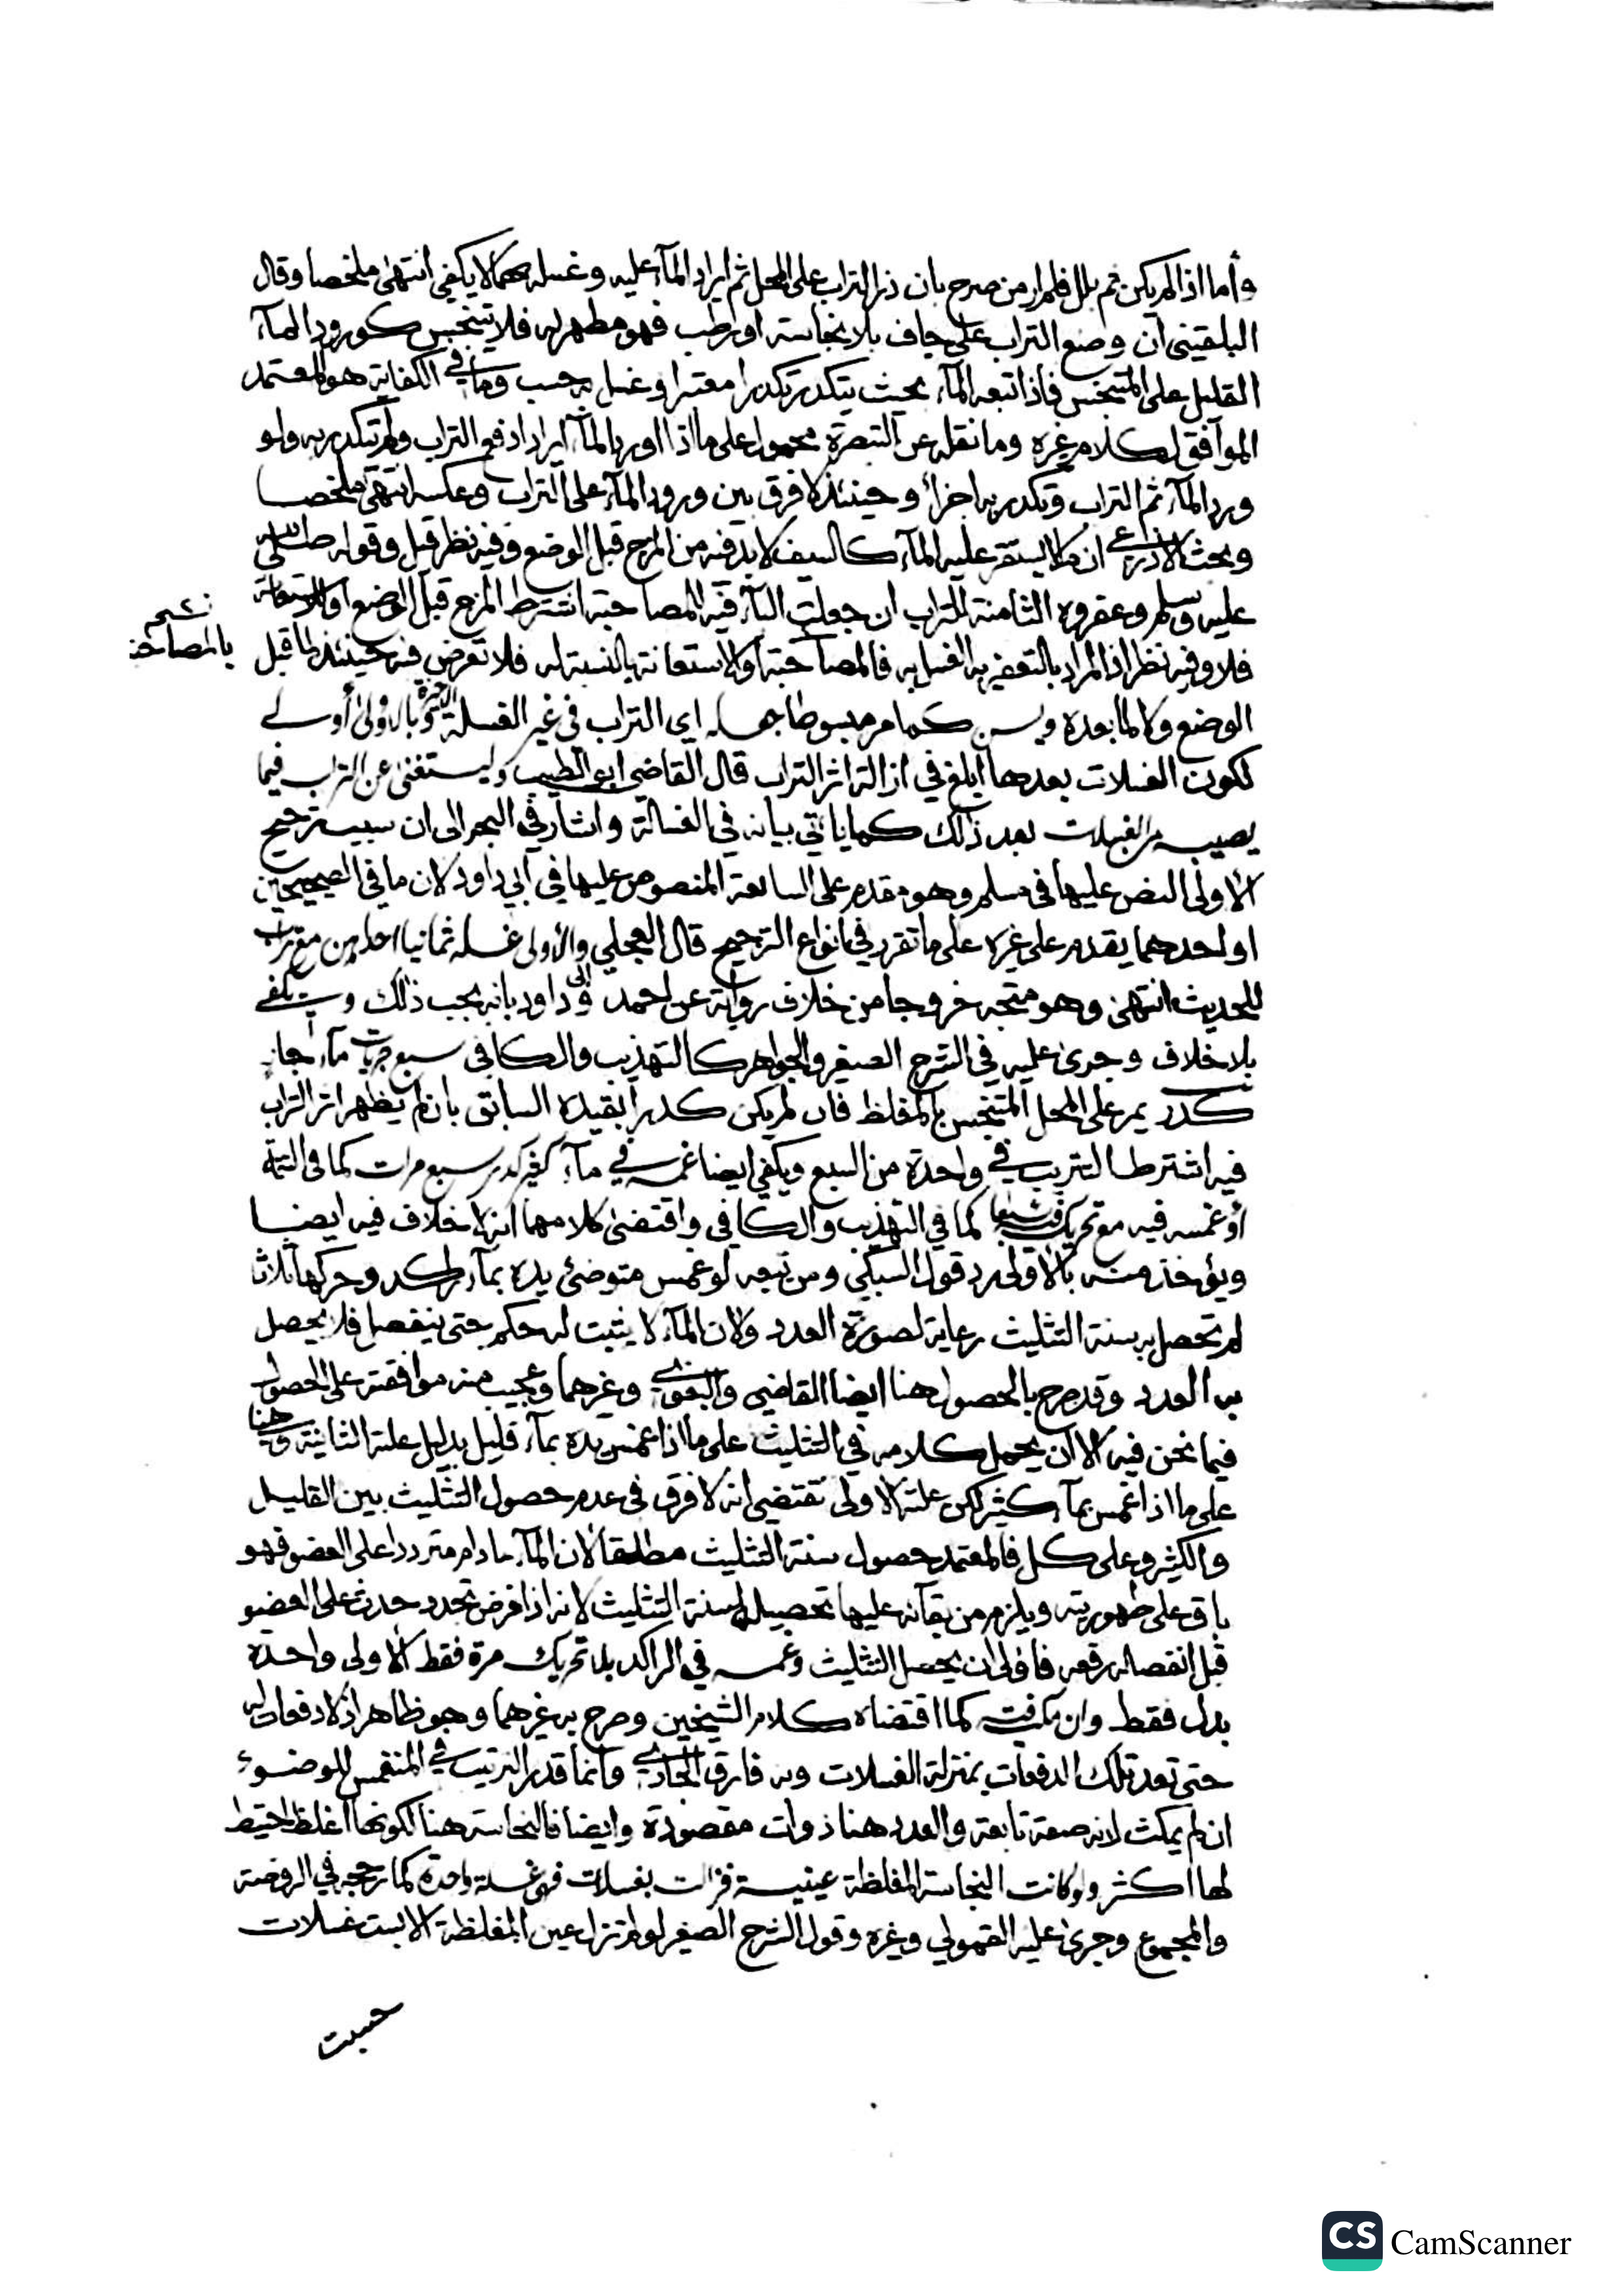 وأما اذا لم يكن ثم بلل فلم ار من صرح بان ذر التراب على المحل ثم ايراد المآء عليه وغسله بهما لا يكفي انتهى ملخصا وقال
البلقيني ان وضع التراب على جاف بلا نجاسة او رطب فهو مطهر له فلا يتنجس كورود المآء
القليل على المتنجس فاذا اتبعه المآء بحيث يتكدر تكدرا معتبرا وغسل به حسب وما في الكفاية هو المعتمد
الموآفق لكلام غيره وما نقله عن التبصرة محمول على ما اذا اورد المآء ايرادا دفع التراب ولم يتكدر به ولو
ورد المآء ثم التراب وتكدر به اجزأ وحينئذ لا فرق بين ورود المآء على التراب وعكسه انتهى ملخصا
وبحث الاذرعي ان ما لا يستقر عليه المآء كالسيف لا بد فيه من المزج قبل الوضع وفيه نظر قيل وقوله صلى الله
عليه وسلم وعفروه الثامنة بالتراب ان جعلت البآء فيه للمصاحبة اشترط المزج قبل الوضع او للاستعانة
بالمصاحبة
فلا وفيه نظر اذ المراد بالتعفير به الغسل به فالمصاحبة او الاستعانة بالنسبة له فلا تعرض فيه حينئذ لما قبل
الوضع ولا لما بعده ويسن كما مر مبسوطا جعله اي التراب في غير الغسلة الاخيرة وبالاولى أولى
لكون الغسلات بعدها ابلغ في ازالة اثر التراب قال القاضي ابو الطيب وليستغنى عن التراب فيما
يصيبه من الغسلات بعد ذلك كما يأتي بيانه في الغسالة واشار في البحر الى ان سبب ترجيح
الأولى النص عليها في مسلم وهو مقدم على السابعة المنصوص عليها في ابي داود لان ما في الصحيحين
او احدهما يقدم على غيره على ما تقرر في انواع الترجيح قال العجلي والأولى غسله ثمانيا احداهن مع تراب
للحديث انتهى وهو متجه خروجا من خلاف رواية عن احمد وابى داود بانه يجب ذلك ويكفي
بلا خلاف وجرى عليه في الشرح الصغير والجواهر كالتهذيب والكافى سبع جريات مآء جار
كدر يمر على المحل المتنجس بالمغلظ فان لم يكن كدرا بقيده السابق بان لم يظهر اثر التراب
فيه اشترط التتريب في واحدة من السبع ويكفي ايضا غمسه في مآء كثير كدر سبع مرات كما فى التتمة
أو غمسه فيه مع تحريكه فيه سبعا كما في التهذيب والكافي واقتضى كلامهما انه لا خلاف فيه ايضا
ويؤخذ منه بالأولى رد قول السبكي ومن تبعه لو غمس متوضئ يده بمآء راكد وحركها ثلاثا
لم تحصل به سنة التثليث رعاية لصورة العدد ولان المآء لا يثبت له حكم حتى ينفصل فلا يحصل
به العدد وقد صرح بالحصول هنا ايضا القاضي والبغوي وغيرهما وعجيب منه موافقته على الحصول
فيما نحن فيه الا ان يحمل كلامه في التثليث على ما اذا غمس يده بمآء قليل بدليل علته الثانية وهنا
على ما اذا غمس بمآء كثير لكن علته الاولى تقتضي انه لا فرق في عدم حصول التثليث بين القليل
والكثير وعلى كل فالمعتمد حصول سنة التثليث مطلقا لان المآء ما دام مترددا على العضو فهو
باق على طهوريته ويلزم من بقآئه عليها تحصيله لسنة التثليث لانه اذا فرض تجدد حدث على العضو
قبل انفصاله رفعه فأولى ان يحصل التثليث وغمسه في الراكد بلا تحريك مرة فقط الأولى واحدة
بدل فقط وان مكث فيه كما اقتضاه كلام الشيخين وصرح به غيرهما وهو ظاهر اذ لا دفعات له
حتى تعد تلك الدفعات بمنزلة الغسلات وبه فارق الجاري وانما قدر الترتيب في المنغمس للوضوء
ان لم يمكث لانه صفة تابعة والعدد هنا ذوات مقصودة وايضا فالنجاسة هنا لكونها اغلظ احتيط
لها اكثر ولو كانت النجاسة المغلظة عينية فزالت بغسلات فهى غسلة واحدة كما رجحه في الروضة
والمجموع وجرى عليه القمولي وغيره وقول الشرح الصغير لو لم تزل عين المغلظة الا بست غسلات
حسبت
CS CamScanner